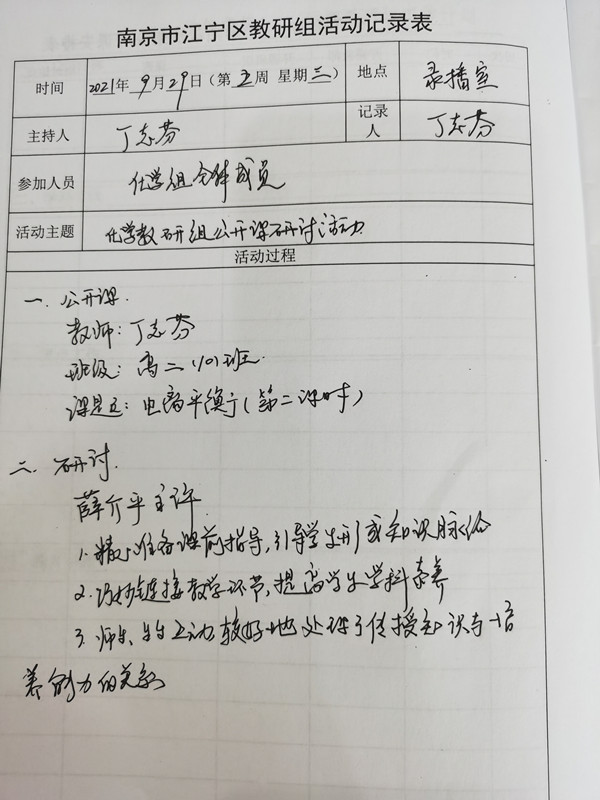 南京市江宁区教研组活动记录表
时间 2021年 9月29日（第五周 星期三） 地点 录播室
主持人 丁志芬 记录人 丁志芬
参加人员 化学组全体成员
活动主题 化学教研组公开课研讨活动
活动过程
一. 公开课.
教师: 丁志芬
班级: 高二(10)班.
课题: 电离平衡(第二课时)
二. 研讨.
薛介平主评
1. 精心准备课前指导, 引导学生形成知识脉络
2. 巧妙链接教学环节, 提高学生学科素养
3. 师生、生生互动较好地处理了传授知识与培
养能力的关系